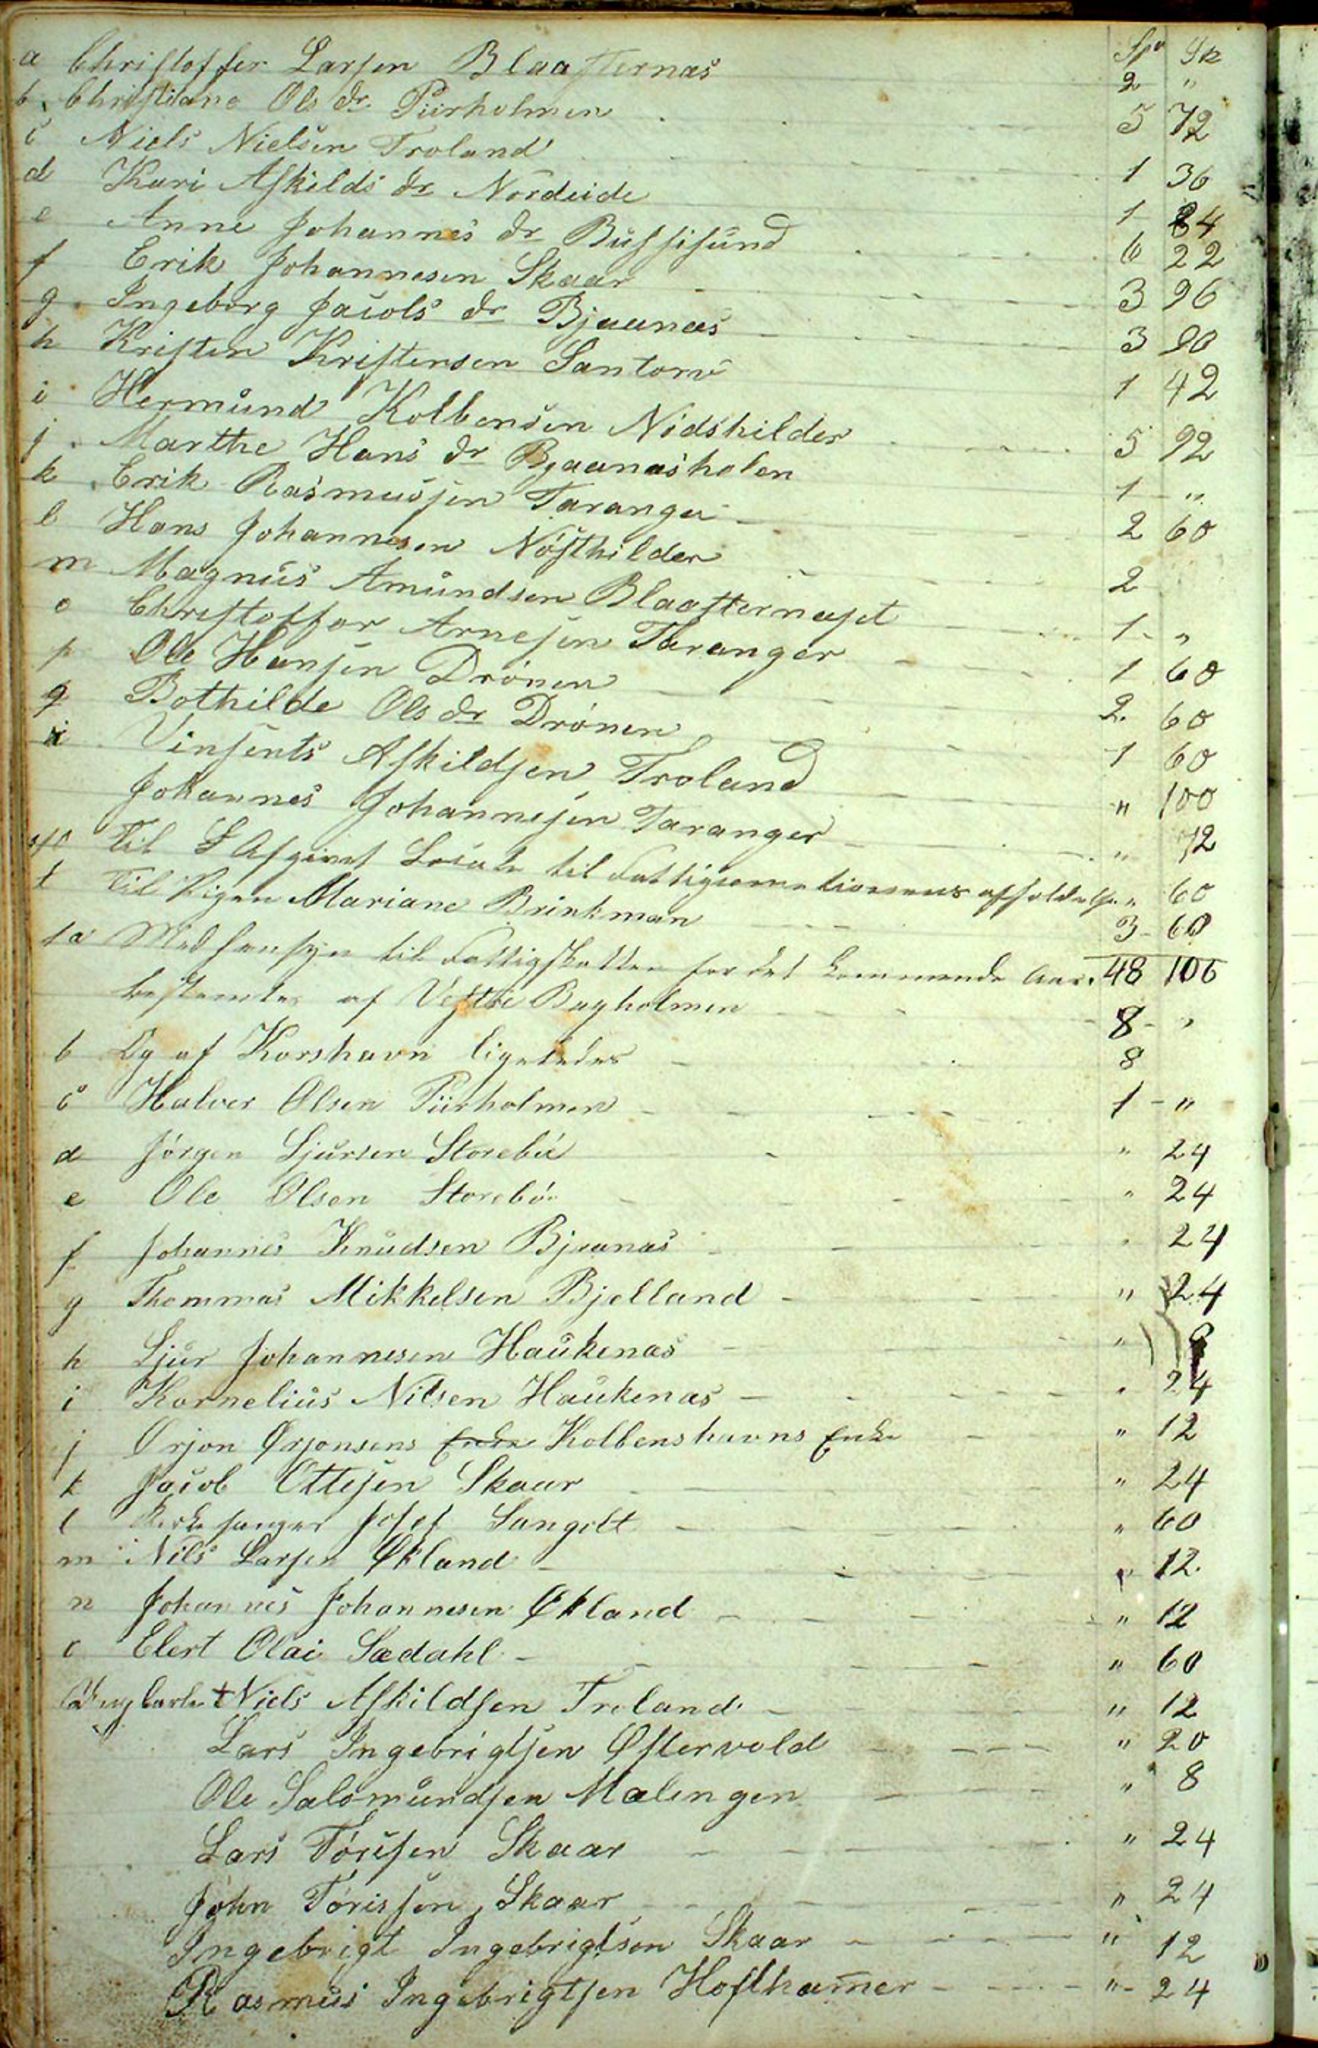 Spd Sk
a Christoffer Larsen Blaasternæs 2 "
b Christiane Ols dr Piirholmen 5 72
c Niels Nielsen Troland 1 36
d Kari Askilds dr Nordeide 1 84
e Anne Johannes dr Bussesund 6 22
f Erik Johannesen Skaar 3 96
g Ingeborg Jacobs dr Bjaanæs 3 90
h Kristen Kristensen Santorv 1 42
i Hermund Kolbensen Nidshilder 5 92
j Marthe Hans dr Bjaanæsholen 1 "
k Erik Rasmussen Taranger 2 60
l Hans Johannesen Nøsthilder 2
m Magnus Amundsen Blaasternæset 1 "
o Christoffer Arnesen Taranger 1 60
p Ole Hansen Drønen 2 60
q Bothilde Ols dr Drønen 1 60
Vinsents Askildsen Troland " 100
Johannes Johannesen Taranger " 72
Til Afgivet Locale til Fattigcomissionens afholdelse " 60
t Til Pigen Mariane Brinkman 3 60
48 106
Med hensyn til Fattigskatten for det kommende Aar
bestemtes af Vestre Bagholmen 8 "
b Og af Korshavn ligeledes 8
c Halver Olsen Piirholmen 1 "
d Jørgen Sjursen Storebø " 24
e Ole Olsen Storebø " 24
f Johannes Knudsen Bjaanæs " 24
g Thommas Mikkelsen Bjelland " 24
h Sjur Johannesen Haukenæs "
i Kornelius Nilsen Haukenæs " 24
j Ørjon Ørjonsens Enke Kolbenshavns Enke " 12
k Jacob Ottesen Skaar " 24
l Kirkesanger Josef Sangolt " 60
m Nils Larsen Økland " 12
n Johannes Johannesen Økland " 12
o Elert Olai Sædahl " 60
Ungkarle Niels Askildsen Troland " 12
Lars Ingebrigtsen Østervold " 20
Ole Salomundsen Malingen " 8
Lars Torisen Skaar " 24
John Torissen Skaar " 24
Ingebrigt Ingebrigtsen Skaar " 12
Rasmus Ingebrigtsen Hofthamer " 24